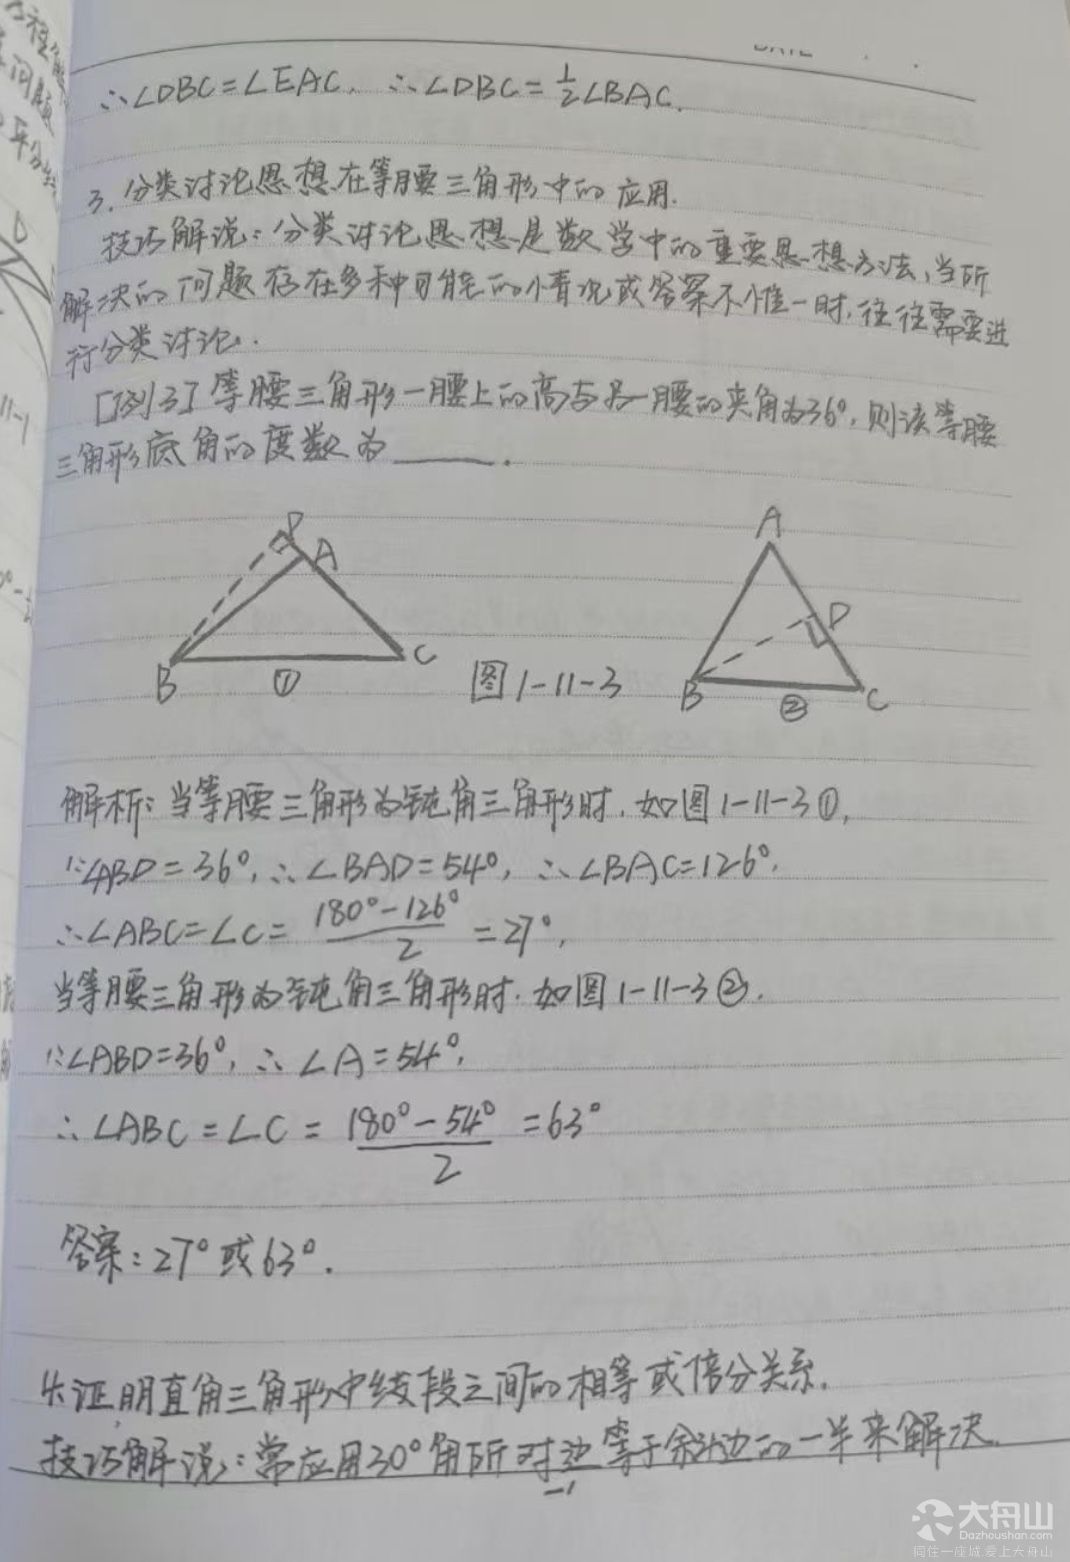 DATE
∴∠DBC=∠EAC, ∴∠DBC=½∠BAC.
3. 分类讨论思想在等腰三角形中的应用.
技巧解说:分类讨论思想是数学中的重要思想方法,当所
解决的问题存在多种可能的情况或答案不惟一时,往往需要进
行分类讨论.
[例3]等腰三角形一腰上的高与另一腰的夹角为36°,则该等腰
三角形底角的度数为______.
D
A
B
C
①
图1-11-3
A
D
B
C
②
解析:当等腰三角形为钝角三角形时,如图1-11-3①,
∵∠ABD=36°,∴∠BAD=54°,∴∠BAC=126°,
∴∠ABC=∠C=(180°-126°)/2=27°,
当等腰三角形为钝角三角形时.如图1-11-3②.
∵∠ABD=36°,∴∠A=54°,
∴∠ABC=∠C=(180°-54°)/2=63°
答案:27°或63°.
4.证明直角三角形中线段之间的相等或倍分关系.
技巧解说:常应用30°角所对边等于斜边的一半来解决.
大舟山
Dazhoushan.com
同住一座城,爱上大舟山